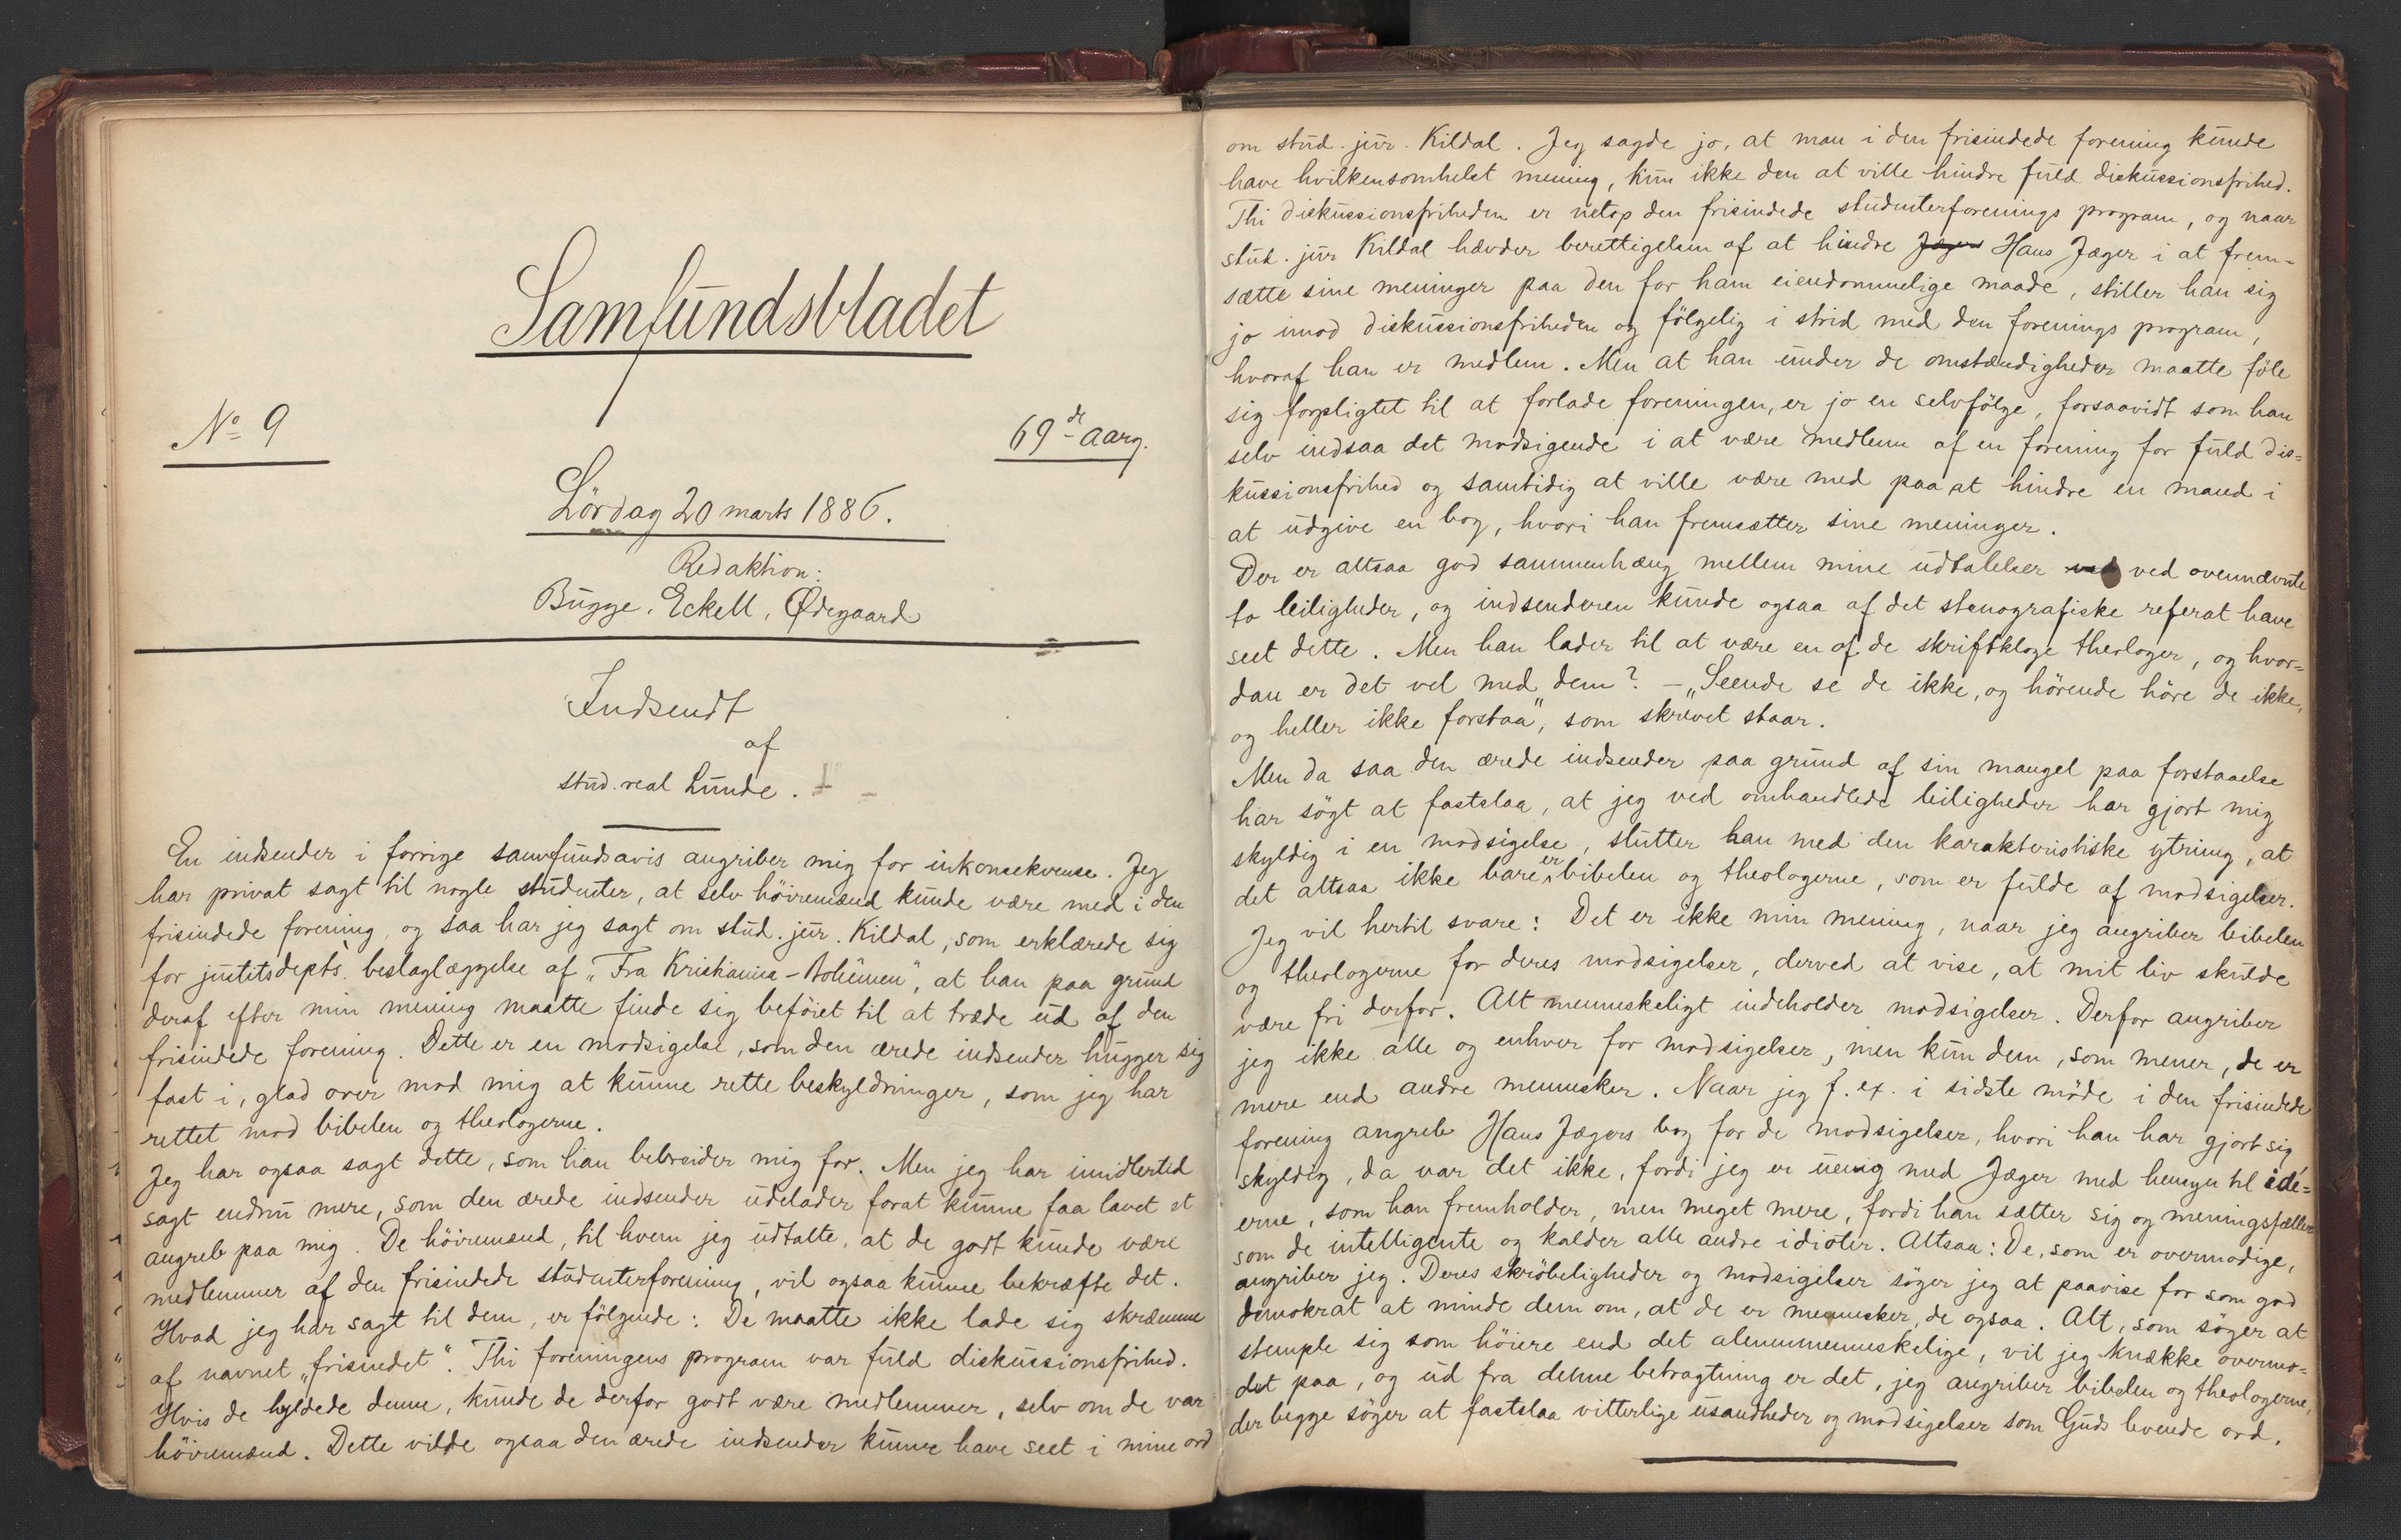 Samfundsbladet
No 9
69de Aarg.
Lördag 20 marts 1886.
Redaktion:
Bugge, Eckell, Ødegaard
Indsendt
af
stud. real Lunde.
En indsender i forrige samfundsavis angriber mig for inkonsekvense. Jeg
har privat sagt til nogle studenter, at selv höiremænd kunde være med i den
frisindede forening, og saa har jeg sagt om stud. jur. Kildal, som erklærede sig
for justitsdepts. beslaglæggelse af „Fra Kristiania-Bohêmen", at han paa grund
deraf efter min mening maatte finde sig beföiet til at træde ud af den
frisindede forening. Dette er en modsigelse, som den ærede indsender hugger sig
fast i, glad over mod mig at kunne rette beskyldninger, som jeg har
rettet mod bibelen og theologerne.
Jeg har ogsaa sagt dette, som han bebreider mig for. Men jeg har imidlertid
sagt endnu mere, som den ærede indsender udelader forat kunne faa lavet et
angreb paa mig. De höiremænd, til hvem jeg udtalte, at de godt kunde være
medlemmer af den frisindede studenterforening, vil ogsaa kunne bekræfte det.
Hvad jeg har sagt til dem, er fölgende: De maatte ikke lade sig skræmme
af navnet „frisindet". Thi foreningens program var fuld diskussionsfrihed.
Hvis de hyldede denne, kunde de derfor godt være medlemmer, selv om de var
höiremænd. Dette vilde ogsaa den ærede indsender kunne have seet i mine ord
om stud. jur. Kildal. Jeg sagde jo, at man i den frisindede forening kunde
have hvilkensomhelst mening, kun ikke den at ville hindre fuld diskussionsfrihed.
Thi diskussionsfriheden er netop den frisindede studenterforenings program, og naar
stud. jur Kildal hævder berettigelsen af at hindre Jæger Hans Jæger i at frem-
sætte sine meninger paa den for ham eiendommelige maade, stiller han sig
jo imod diskussionsfriheden og fölgelig i strid med den forenings program,
hvoraf han er medlem. Men at han under de omstændigheder maatte föle
sig forpligtet til at forlade foreningen, er jo en selvfölge, forsaavidt som han
selv indsaa det modsigende i at være medlem af en forening for fuld dis-
kussionsfrihed og samtidig at ville være med paa at hindre en mand i
at udgive en bog, hvori han fremsætter sine meninger.
Der er altsaa god sammenhæng mellem mine udtalelser ved ved ovennævnte
to leiligheder, og indsenderen kunde ogsaa af det stenografiske referat have
seet dette. Men han lader til at være en af de skriftkloge theologer, og hvor-
dan er det vel med dem? – „Seende se de ikke, og hörende höre de ikke,
og heller ikke forstaa", som skrevet staar.
Men da saa den ærede indsender paa grund af sin mangel paa forstaaelse
har sögt at fastslaa, at jeg ved omhandlede leiligheder har gjort mig
skyldig i en modsigelse, slutter han med den karakteristiske ytring, at
det altsaa ikke bare er bibelen og theologerne, som er fulde af modsigelser.
Jeg vil hertil svare: Det er ikke min mening, naar jeg angriber bibelen
og theologerne for deres modsigelser, derved at vise, at mit liv skulde
være fri derfor. Alt menneskeligt indeholder modsigelser. Derfor angriber
jeg ikke alle og enhver for modsigelser, men kun dem, som mener, de er
mere end andre mennesker. Naar jeg f. ex. i sidste möde i den frisindede
forening angreb Hans Jægers bog for de modsigelser, hvori han har gjort sig
skyldig, da var det ikke, fordi jeg er uenig med Jæger med hensyn til idé-
erne, som han fremholder, men meget mere, fordi han sætter sig og meningsfæller
som de intelligente og kalder alle andre idioter. Altsaa: De, som er overmodige,
angriber jeg. Deres skröbeligheder og modsigelser söger jeg at paavise for som god
demokrat at minde dem om, at de er mennesker, de ogsaa. Alt, som söger at
stemple sig som höiere end det almenmenneskelige, vil jeg knække overmo-
det paa, og ud fra denne betragtning er det, jeg angriber bibelen og theologerne,
der begge söger at fastslaa vitterlige usandheder og modsigelser som Guds levende ord.